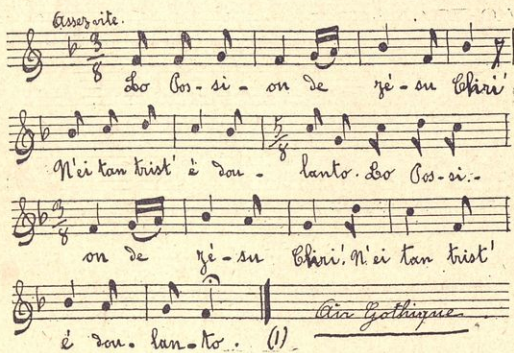 Assez vite.
3 8
Lo Pos-si-on de zé-su Chiri'
5 8
N'ei tan trist' é dou-lanto. Lo Pos-si-
3 8
on de zé-su Chiri'. N'ei tan trist'
é dou-lan-to. (1) Air Gothique